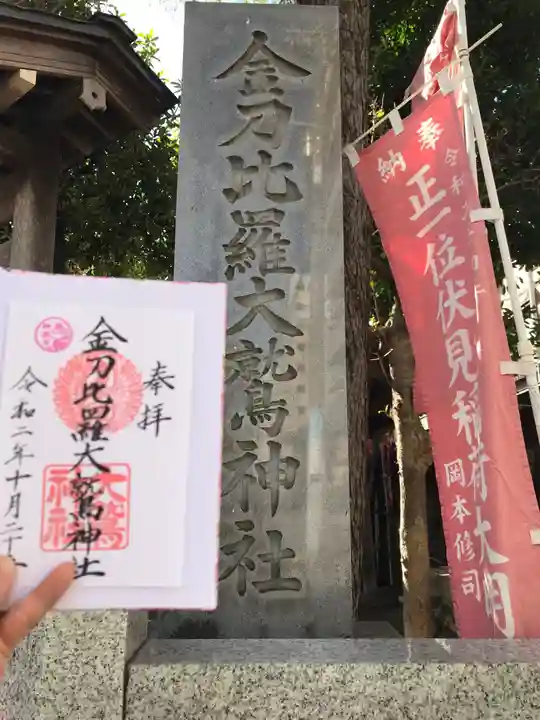 金刀比羅大鷲神社
奉拝
金刀比羅大鷲神社
令和二年十月二十
大鷲
神社
奉納
令和
正一位伏見稲荷大明
岡本修司